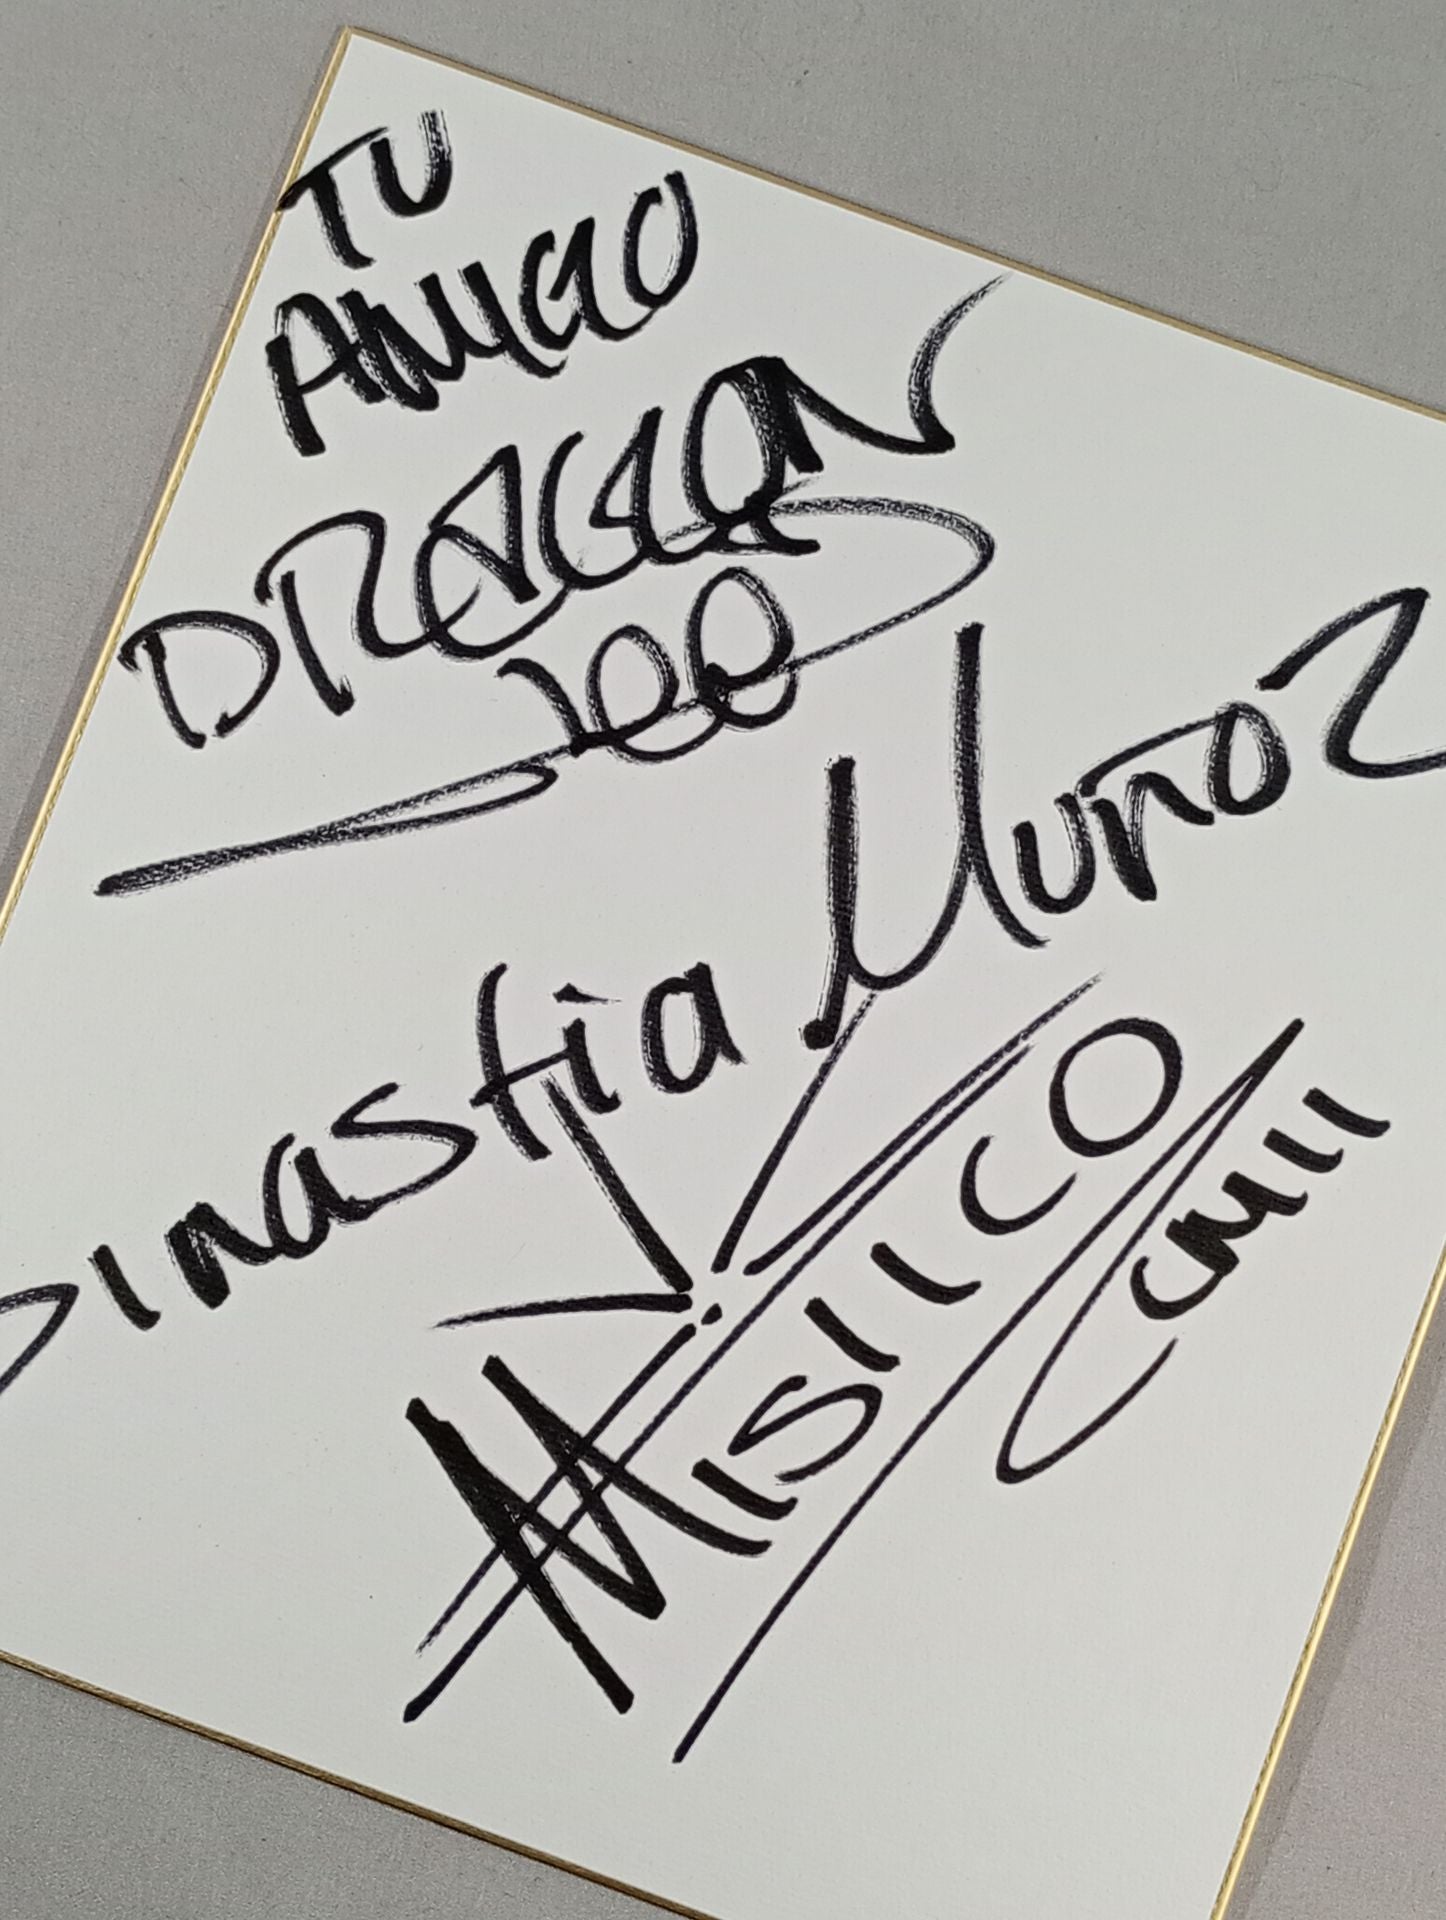 TU
AMIGO
DRAGON
Lee
Dinastia Muñoz
MISTICO
CMLL